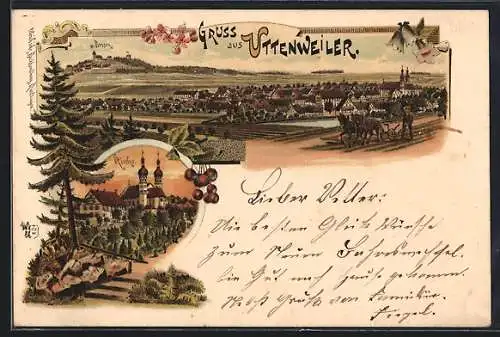 GRUSS
AUS UTTENWEILER.
Bussen.
Kirche.
Lieber Vetter:
Die besten Glück Wünsche
zum Neuen Jahreswechsel.
bin Gut nach Hause gekommen.
Nebst Gruß von Familie